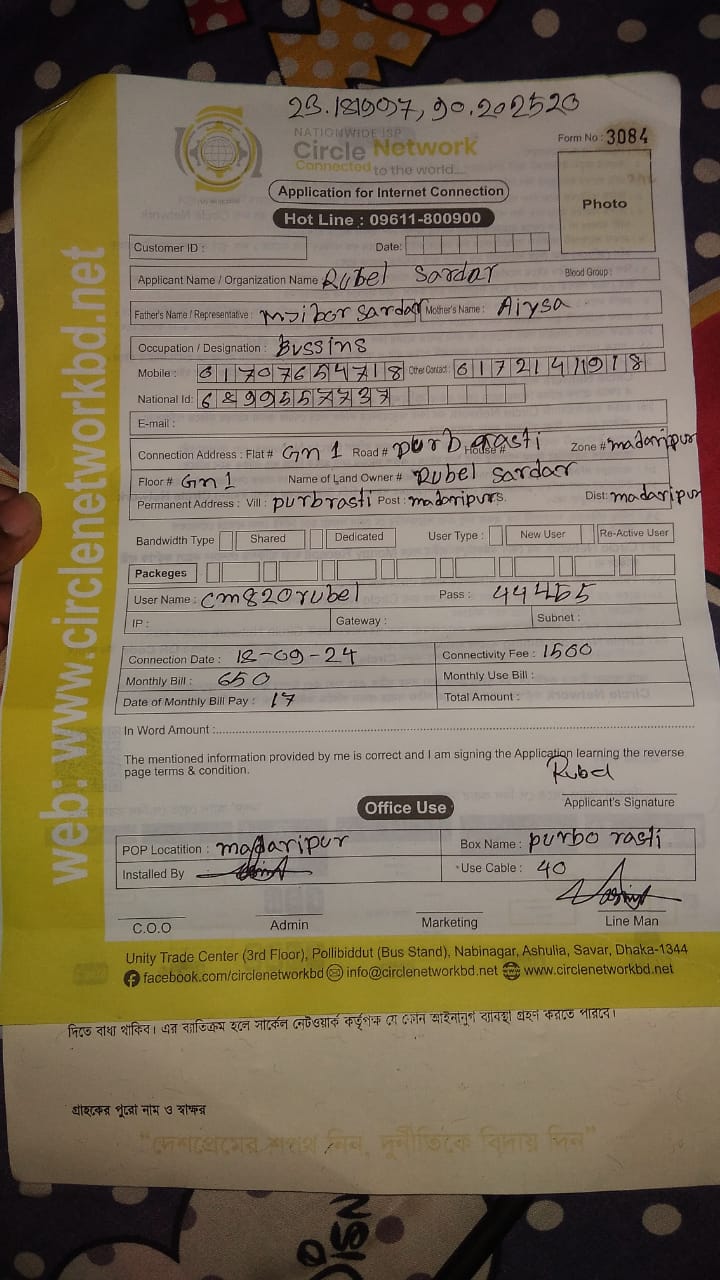 23.181997, 90.202520
NATIONWIDE ISP
Circle Network
Connected to the world....
Form No : 3084
Application for Internet Connection
Photo
Hot Line : 09611-800900
Customer ID :
Date:
Applicant Name / Organization Name Rubel Sardar Blood Group :
Father's Name / Representative : Mojibor Sardar Mother's Name : Aiysa
Occupation / Designation : Bussins
Mobile : 01707654718 Other Contact : 01721411918
National Id: 6899557737
E-mail :
Connection Address : Flat # Gn 1 Road # purb rasti House # Zone # madaripur
Floor # Gn 1 Name of Land Owner # Rubel Sardar
Permanent Address : Vill : purbrasti Post : madaripur P.S. Dist: madaripur
Bandwidth Type Shared Dedicated User Type : New User Re-Active User
Packeges
User Name : cm820rubel Pass : 44455
IP : Gateway : Subnet :
Connection Date : 18-09-24 Connectivity Fee : 1500
Monthly Bill : 650 Monthly Use Bill :
Date of Monthly Bill Pay : 17 Total Amount :
In Word Amount :
The mentioned information provided by me is correct and I am signing the Application learning the reverse
page terms & condition.
Rubel
Applicant's Signature
Office Use
POP Locatition : madaripur Box Name : purbo rasti
Installed By Use Cable : 40
C.O.O Admin Marketing Line Man
Unity Trade Center (3rd Floor), Pollibiddut (Bus Stand), Nabinagar, Ashulia, Savar, Dhaka-1344
facebook.com/circlenetworkbd info@circlenetworkbd.net www.circlenetworkbd.net
web: www.circlenetworkbd.net
দিতে বাধ্য থাকিব। এর ব্যতিক্রম হলে সার্কেল নেটওয়ার্ক কর্তৃপক্ষ যে কোন আইনানুগ ব্যবস্থা গ্রহণ করতে পারবে।
গ্রাহকের পুরো নাম ও স্বাক্ষর
"দেশপ্রেমের শপথ নিন, দুর্নীতিকে বিদায় দিন"